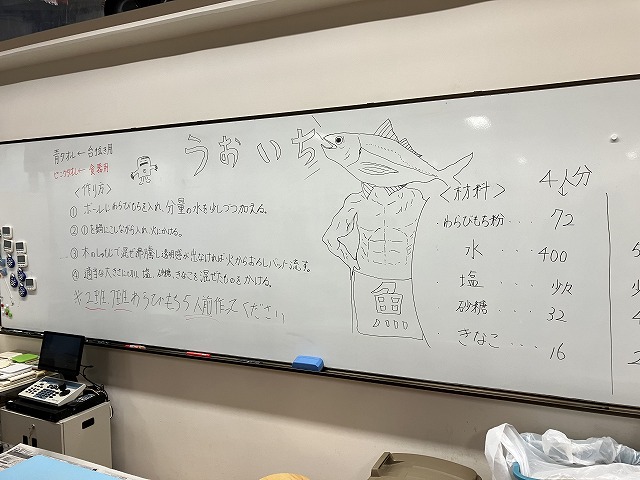 うおいち
青タオル ← 台拭き用
ピンクタオル ← 食器用
〈作り方〉
① ボールにわらびもち粉を入れ、分量の水を少しづつ加える。
② ①を鍋にこしながら入れ、火にかける。
③ 木のしゃもじで混ぜ沸騰し透明感が出なければ火からおろしバットに流す。
④ 適当な大きさにし、塩、砂糖、きなこを混ぜたものをかける。
※ 2班、7班 わらびもち 5人前作ってください
魚
〈材料〉 4人分
わらびもち粉 ・・・ 72
水 ・・・ 400
塩 ・・・ 少々
砂糖 ・・・ 32
きなこ ・・・・ 16